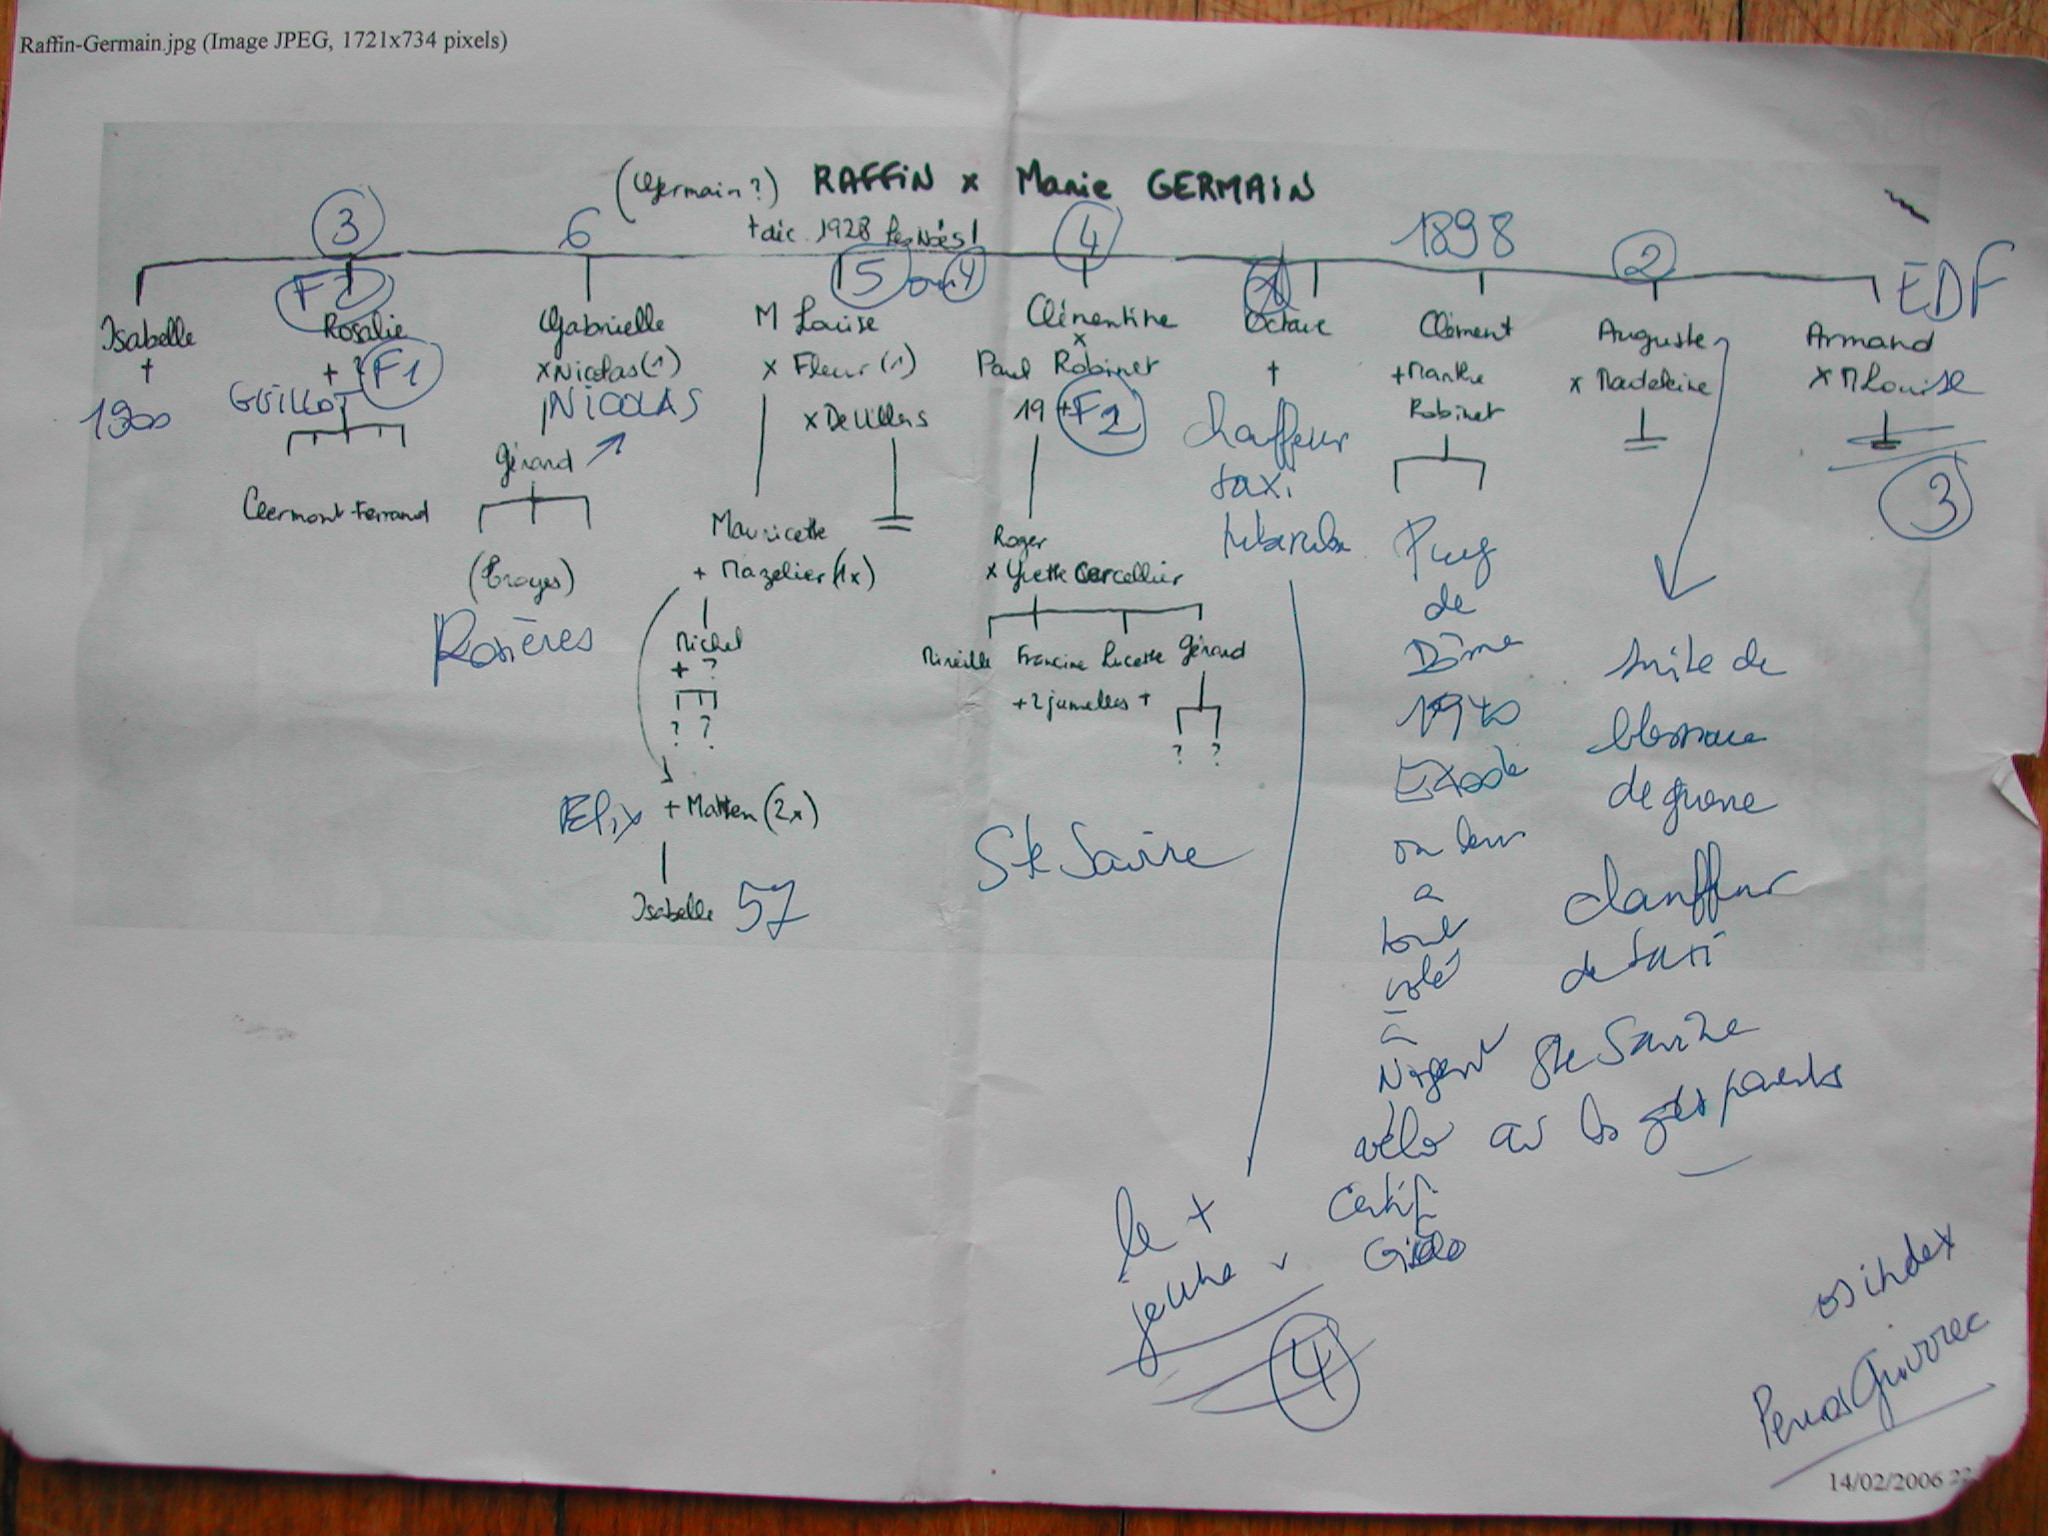 Raffin-Germain.jpg (Image JPEG, 1721x734 pixels)
(Germain ?) RAFFIN x Marie GERMAIN
† déc. 1928 les Noës !
3
6
5 ou 4
4
1898
2
EDF
Isabelle
†
1900
Rosalie
+ ?
F1
GUILLOT
Clermont-Ferrand
Gabrielle
x Nicolas (1)
NICOLAS
Gérard
(Troyes)
Rosières
M Louise
x Fleur (1)
x Devillers
Mauricette
+ Mazelier (1x)
Michel
+ ?
? ?
Elix + Matten (2x)
Isabelle 57
Clémentine
x
Paul Robinet
19 +
F2
Roger
x Yvette Corcellier
Mireille Francine Lucette Gérard
+ 2 jumelles +
? ?
Ste Savine
Octave
†
chauffeur
taxi
le +
jeune
4
Clément
+ Marthe
Robinet
Puy
de
Dôme
1940
Exode
on leur
a
tout
volé
à
Nogent
vélo av les gds parents
Certif
Auguste
x Madeleine
suite de
blessure
de guerre
chauffeur
de taxi
Ste Savine
Armand
x M Louise
3
os index
Perros Guirrec
14/02/2006 22